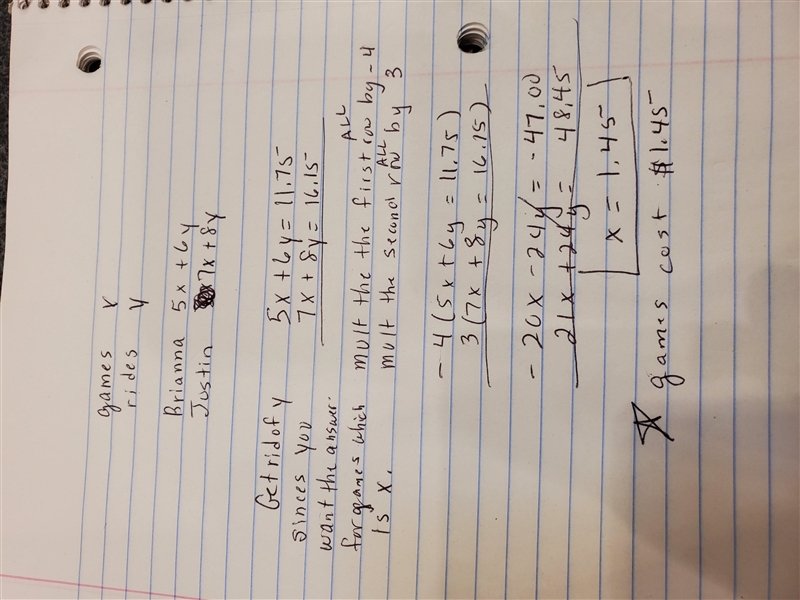 games x
rides y
Brianna 5x + 6y
Justin 7x + 8y
Get rid of y
sinces you
want the answer.
for games which
is x.
5x + 6y = 11.75
7x + 8y = 16.15
mult the the first row by -4
ALL
mult the second row by 3
ALL
-4(5x + 6y = 11.75)
3(7x + 8y = 16.15)
-20x - 24y = -47.00
21x + 24y = 48.45
x = 1.45
☆ games cost $1.45